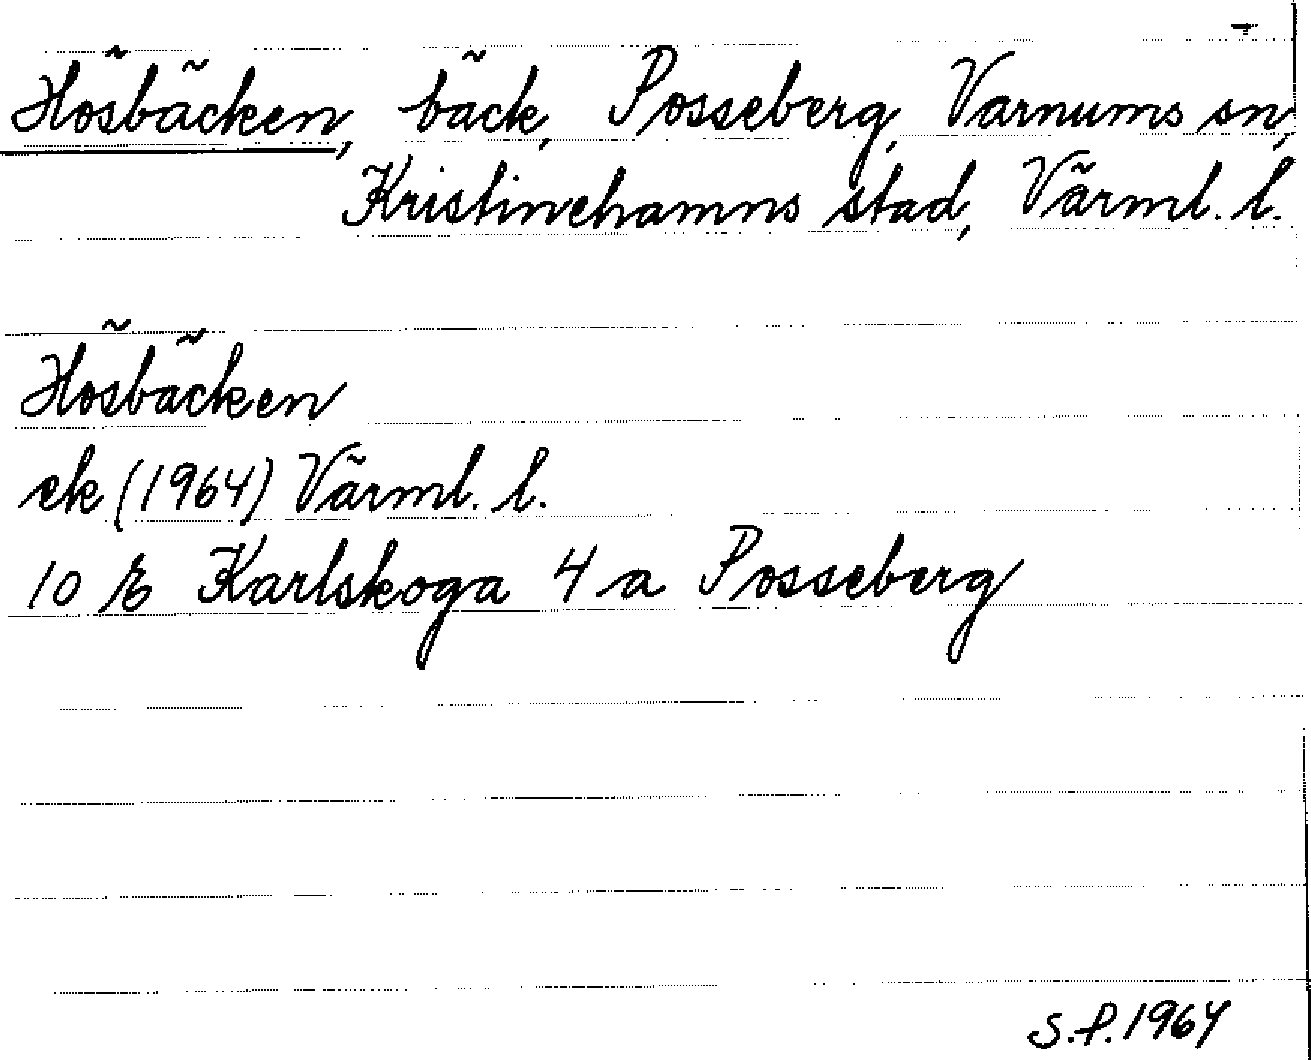 Hösbäcken, bäck, Posseberg, Varnums sn,
Kristinehamns stad, Värml. l.
Hösbäcken
ek (1964) Värml. l.
10 E Karlskoga 4 a Posseberg
S.P. 1964